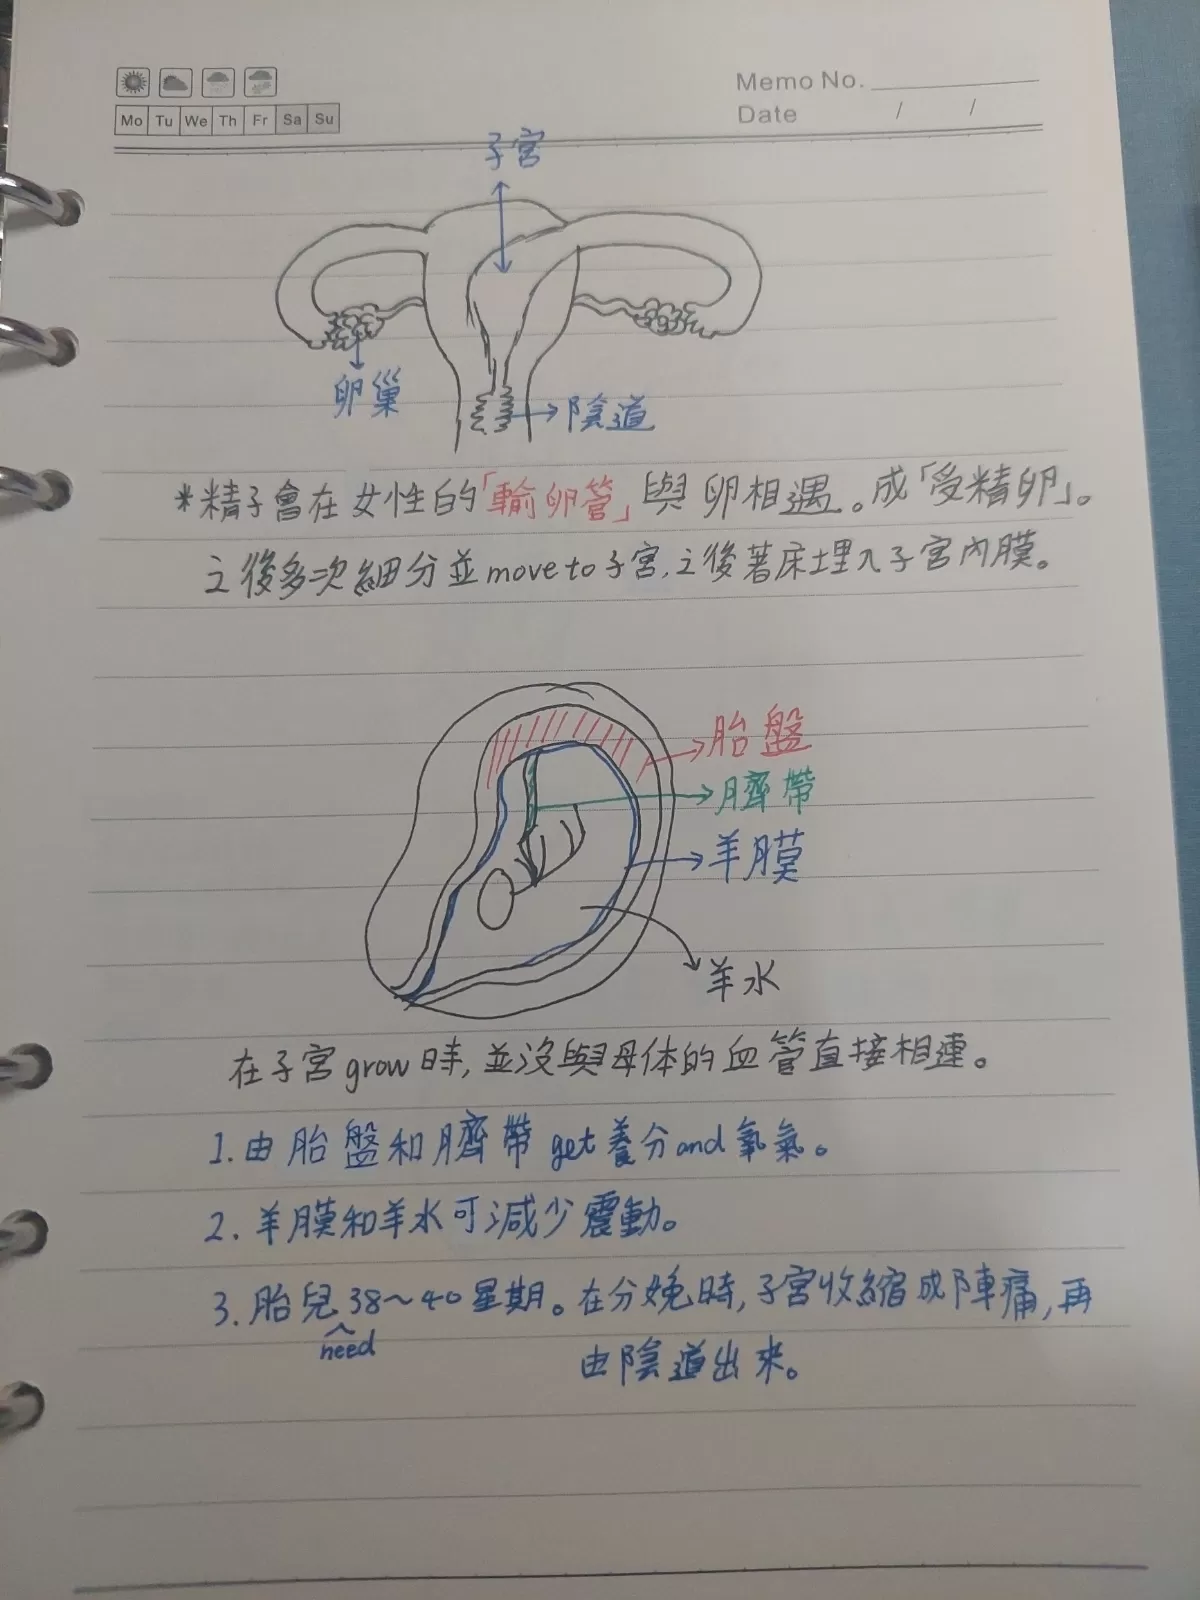 Memo No.
Mo Tu We Th Fr Sa Su
Date / /
子宮
卵巢
陰道
*精子會在女性的「輸卵管」與卵相遇。成「受精卵」。
之後多次細分並move to子宮,之後著床埋入子宮內膜。
胎盤
臍帶
羊膜
羊水
在子宮grow時,並沒與母体的血管直接相連。
1.由胎盤和臍帶get養分and氧氣。
2.羊膜和羊水可減少震動。
3.胎兒38~40星期。在分娩時,子宮收縮成陣痛,再
need
由陰道出來。